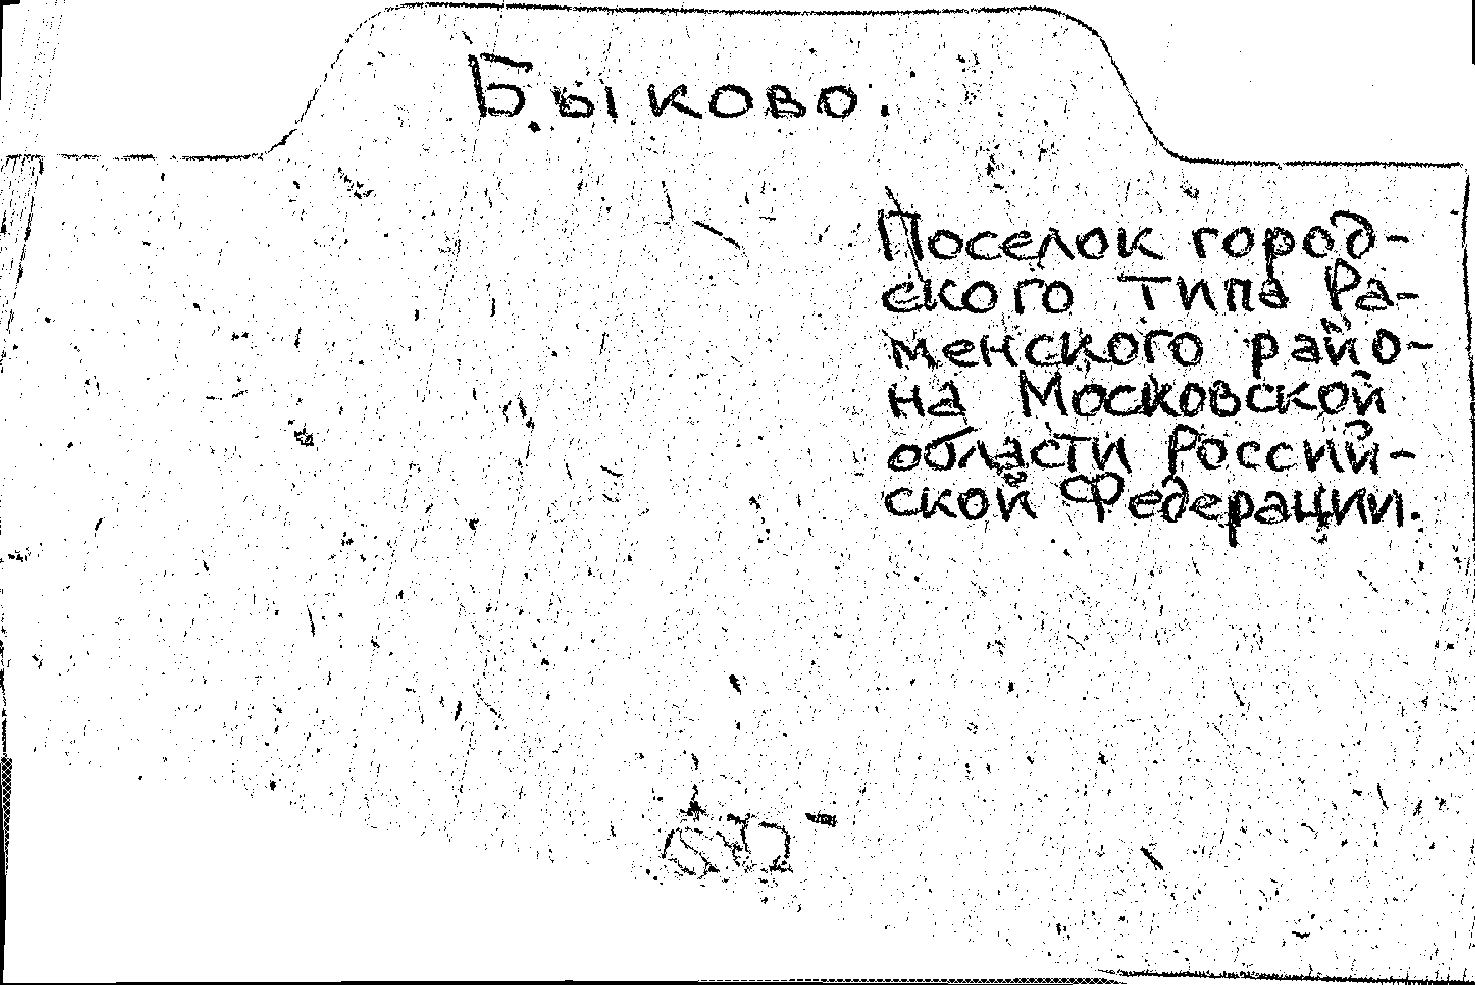 Быково.
Поселок город-
ского типа Ра-
менского райо-
на Московской
области Россий-
ской Федерации.